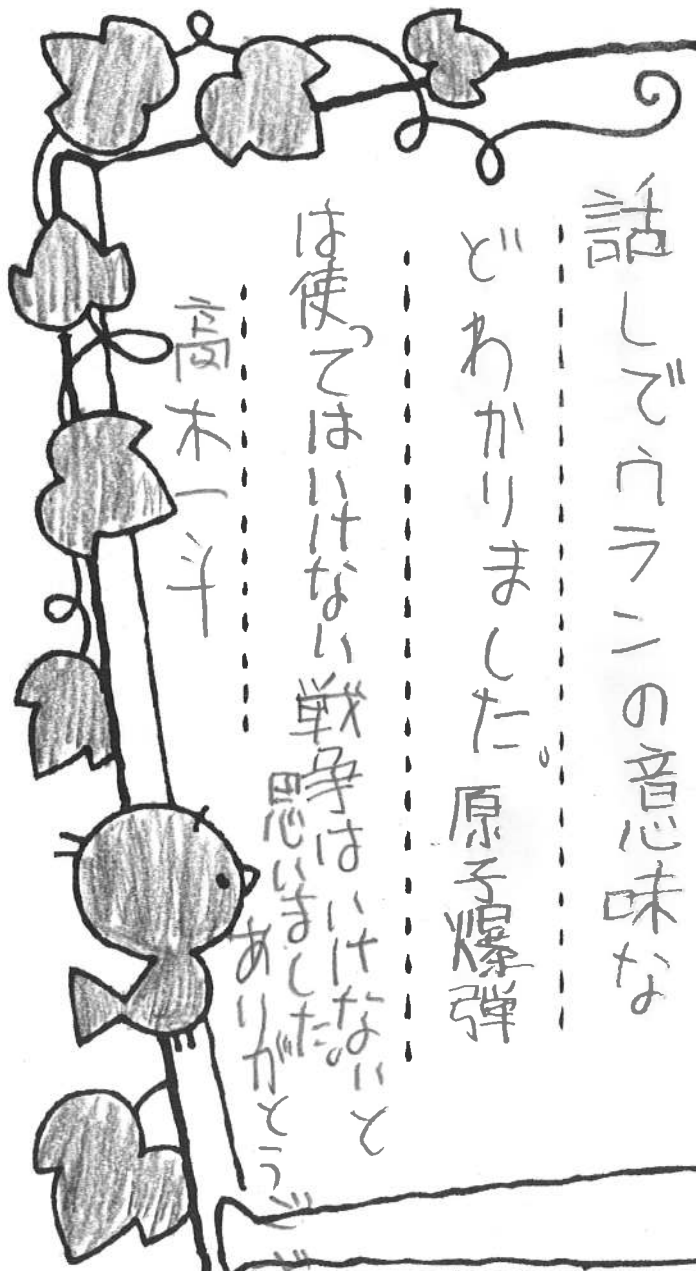 話しでウランの意味な
どわかりました。原子爆弾
は使ってはいけない戦争はいけないと
思いました。
ありがとうござ
高木一斗